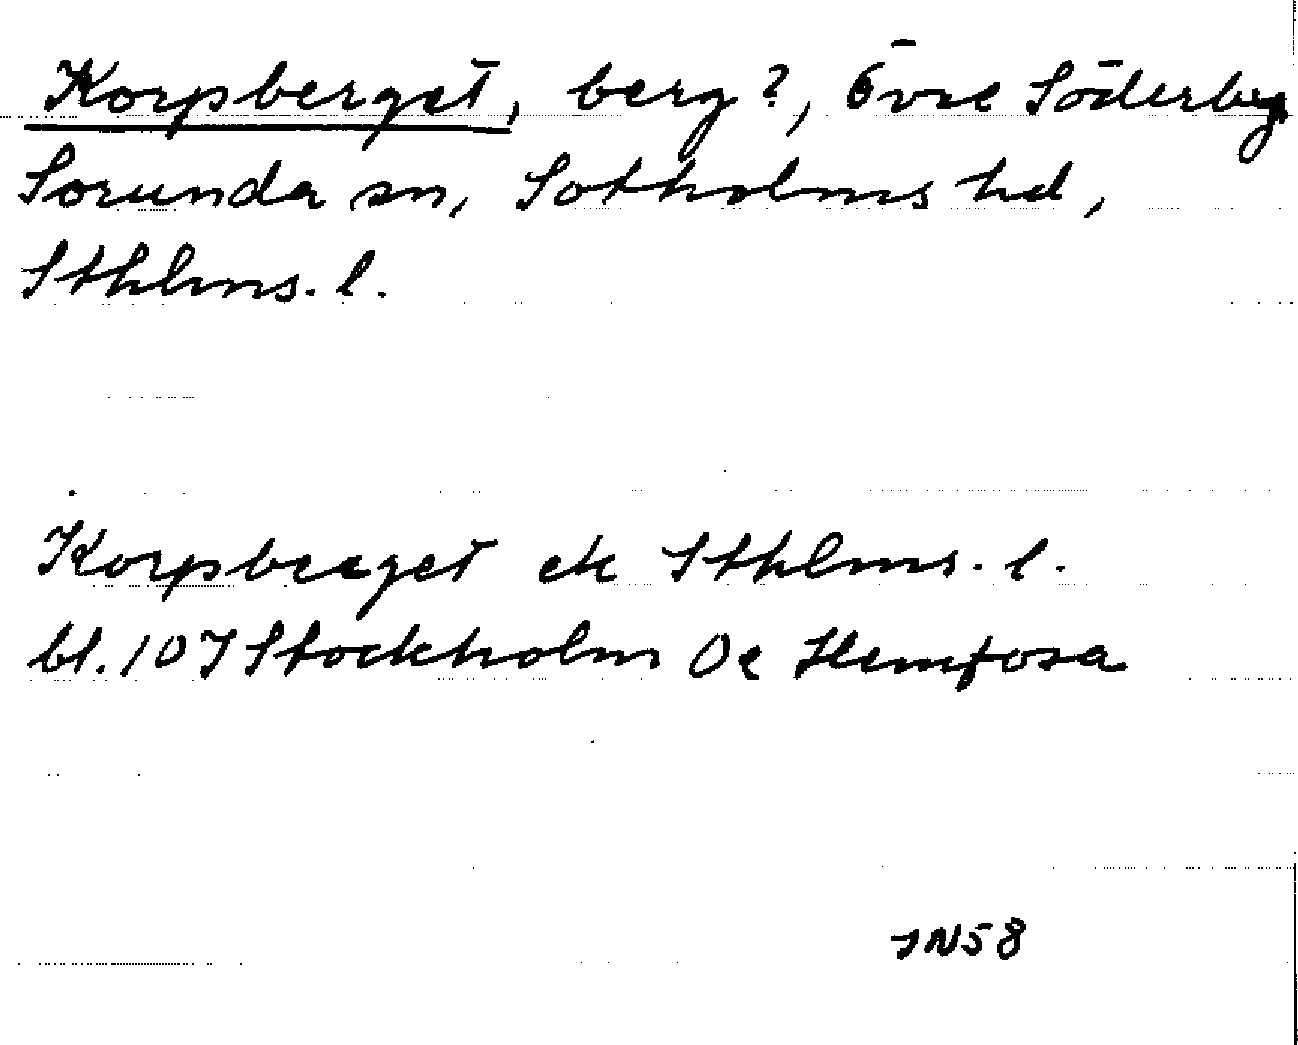 Korpberget, berg?, Övre Söderby
Sorunda sn, Sotholms hd,
Sthlms. l.
Korpberget ek Sthlms. l.
bl. 107 Stockholm Oe Hemfosa
JN58